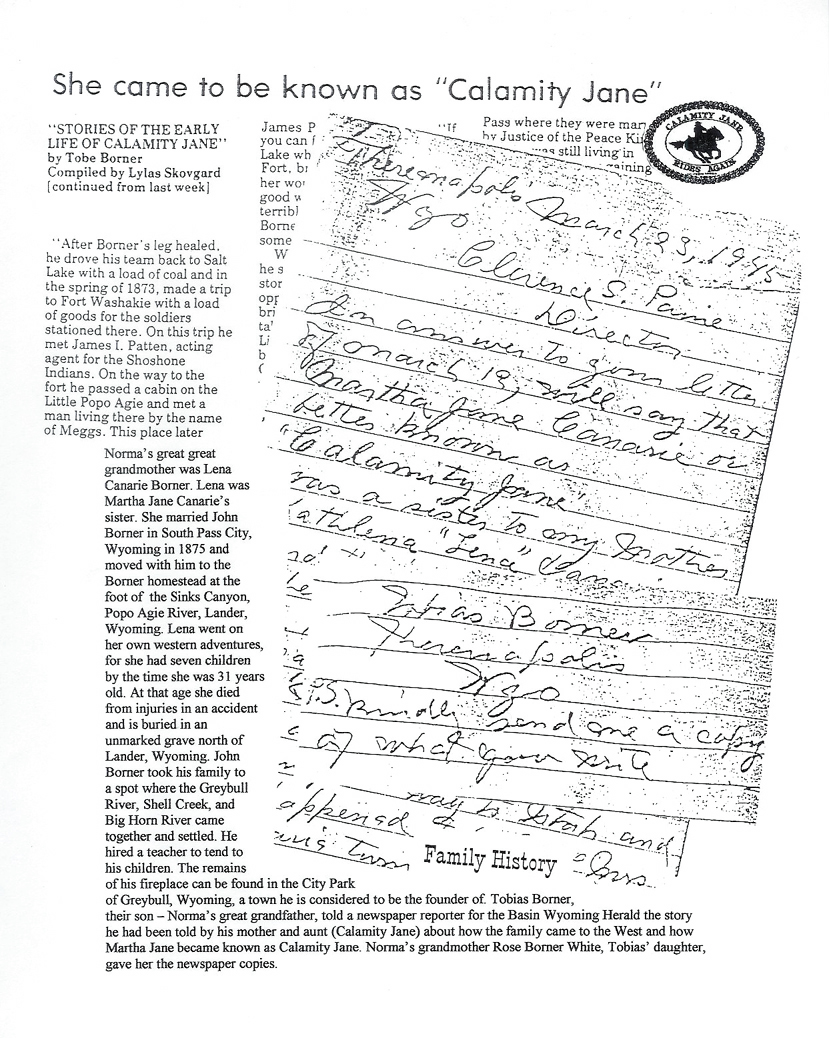 She came to be known as "Calamity Jane"
"STORIES OF THE EARLY
LIFE OF CALAMITY JANE"
by Tobe Borner
Compiled by Lylas Skovgard
[continued from last week]
"After Borner's leg healed,
he drove his team back to Salt
Lake with a load of coal and in
the spring of 1873, made a trip
to Fort Washakie with a load
of goods for the soldiers
stationed there. On this trip he
met James I. Patten, acting
agent for the Shoshone
Indians. On the way to the
fort he passed a cabin on the
Little Popo Agie and met a
man living there by the name
of Meggs. This place later
James P
you can
Lake wh
Fort,
her
good
terribl
Borne
some
W
he s
stor
"If
Pass where they were mar
by Justice of the Peace
was still living in
CALAMITY JANE
RIDES AGAIN
Thermapolis March 23, 1945
Wyo
Clerence S. Paine
Director
In answer to your letter
of March 19, will say that
Martha Jane Canarie or
better known as
"Calamity Jane"
was a sister to my Mother
"Lena"
Tobias Borner
Thermapolis
Wyo
P.S. kindly send me a copy
of what you write
way to Utah and
Norma's great great
grandmother was Lena
Canarie Borner. Lena was
Martha Jane Canarie's
sister. She married John
Borner in South Pass City,
Wyoming in 1875 and
moved with him to the
Borner homestead at the
foot of the Sinks Canyon,
Popo Agie River, Lander,
Wyoming. Lena went on
her own western adventures,
for she had seven children
by the time she was 31 years
old. At that age she died
from injuries in an accident
and is buried in an
unmarked grave north of
Lander, Wyoming. John
Borner took his family to
a spot where the Greybull
River, Shell Creek, and
Big Horn River came
together and settled. He
hired a teacher to tend to
his children. The remains
of his fireplace can be found in the City Park
of Greybull, Wyoming, a town he is considered to be the founder of. Tobias Borner,
their son – Norma's great grandfather, told a newspaper reporter for the Basin Wyoming Herald the story
he had been told by his mother and aunt (Calamity Jane) about how the family came to the West and how
Martha Jane became known as Calamity Jane. Norma's grandmother Rose Borner White, Tobias' daughter,
gave her the newspaper copies.
Family History